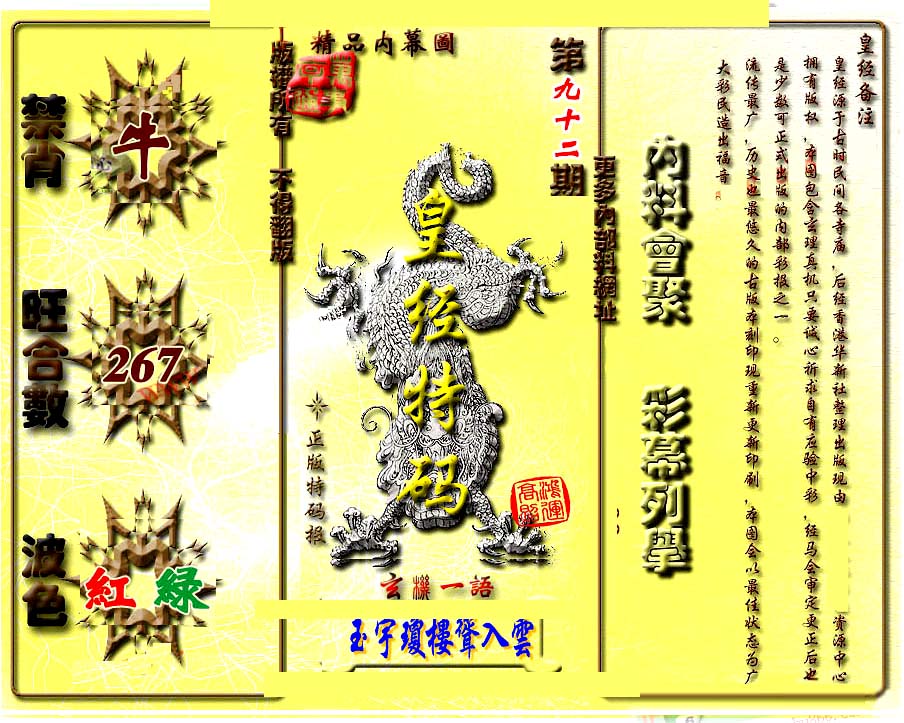 皇经备注
皇经源于古时民间各寺庙，后经香港华新社整理出版现由 资源中心
拥有版权，本图包含玄理真机只要诚心祈求自有应验中彩，经马会审定更正后也
是少数可正式出版的内部彩报之一。
流传最广，历史也最悠久的古版本刻印现重新更新印刷，本图会以最佳状态为广
大彩民造出福音
內料會聚 彩幕列舉
更多內部料網址
第九十二期
精品内幕圖
皇经特码
正版特码报
鸿運高照
玄機一語
玉宇瓊樓聳入雲
版權所有 不得翻版
禁肖
牛
旺合數
267
波色
紅 綠